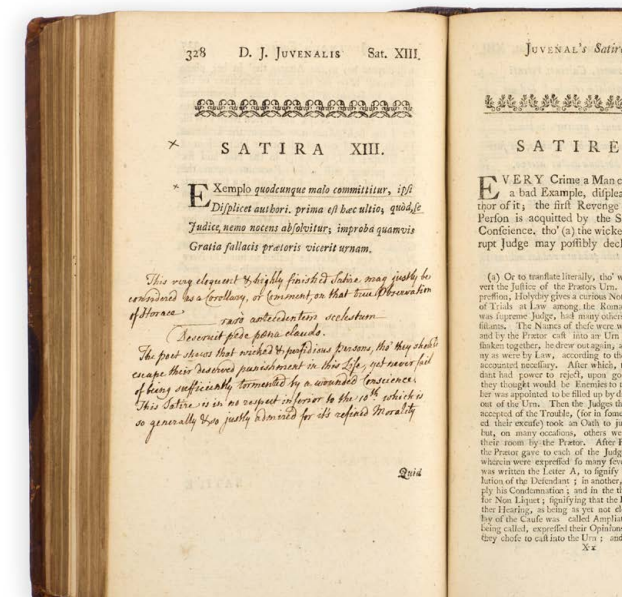 328 D. J. JUVENALIS Sat. XIII.
× SATIRA XIII.
* EXemplo quodcunque malo committitur, ipsi
Displicet authori. prima est hæc ultio; quòd, se
Judice, nemo nocens absolvitur; improba quamvis
Gratia fallacis prætoris vicerit urnam.
This very eloquent & highly finished Satire may justly be
considered as a Corollary, or Comment, on that true Observation
of Horace
raro antecedentem scelestum
Deseruit pede pœna claudo.
The poet shews that wicked & perfidious persons, tho' they should
escape their deserved punishment in this Life, yet never fail
of being sufficiently tormented by a wounded Conscience.
This Satire is in no respect inferior to the 10th which is
so generally & so justly admired for it's refined Morality
Quid
JUVENAL's Satir
SATIRE
EVERY Crime a Man c
a bad Example, displea
thor of it; the first Revenge
Person is acquitted by the S
Conscience, tho' (a) the wicke
rupt Judge may possibly decl
(a) Or to translate literally, tho' w
vert the Justice of the Prætors Urn.
pression, Holyday gives a curious No
of Trials at Law among the Roma
was supreme Judge, had many other
sistants. The Names of these were w
and by the Prætor cast into an Urn
shaken together, he drew out again, a
ny as were by Law, according to th
accounted necessary. After which, t
dant had power to reject, upon go
they thought would be Enemies to t
ber was appointed to be filled up by d
out of the Urn. Then the Judges th
accepted of the Trouble, (for in some
ed their excuse) took an Oath to ju
but, on many occasions, others we
their room by the Prætor. After
the Prætor gave to each of the Judg
wherein were expressed so many seve
was written the Letter A, to signify
lution of the Defendant; in another,
ply his Condemnation; and in the t
for Non Liquet; signifying that the
ther Hearing, as being as yet not cl
lay of the Cause was called Ampliat
being called, expressed their Opinions
they chose to cast into the Urn; and
X x